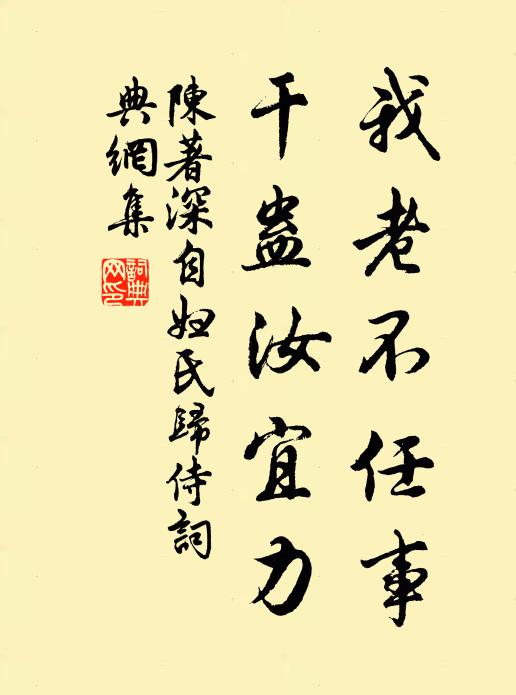 我老不任事
干蛊汝宜力
陳著深自妲氏歸侍詞
典網集
詞典
网印